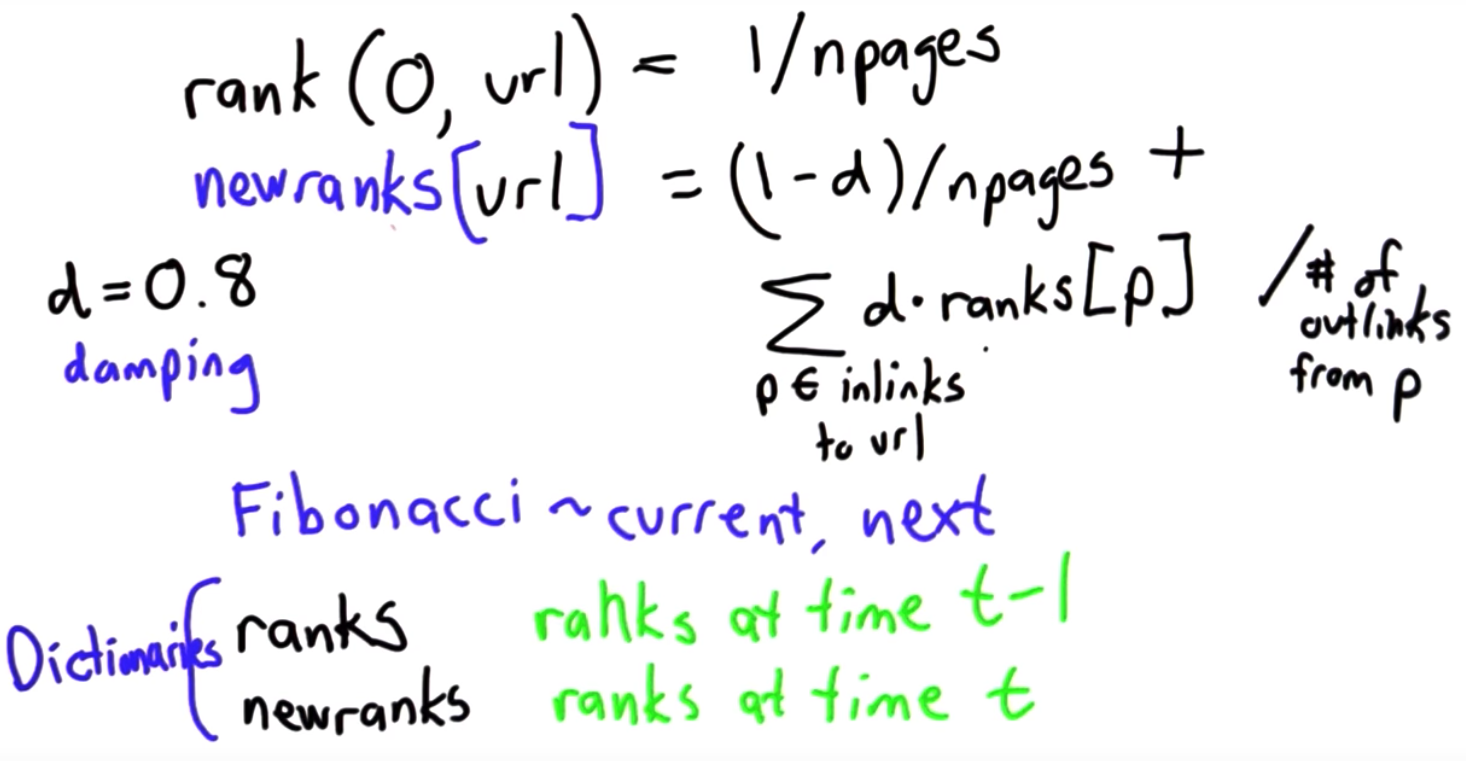 rank (0, url) = 1/npages
newranks[url] = (1-d)/npages +
d = 0.8
damping
∑ d · ranks[p] /# of outlinks from p
p ∈ inlinks
to url
Fibonacci ~ current, next
Dictionaries
ranks ranks at time t-1
newranks ranks at time t